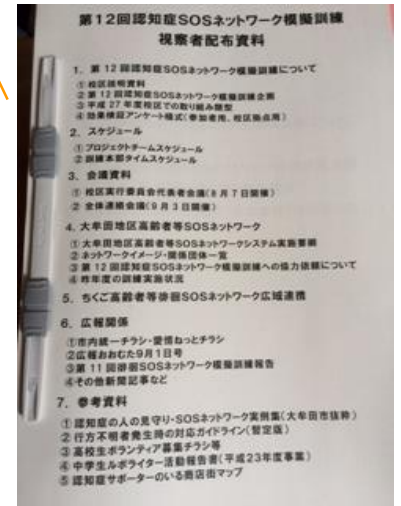 第12回認知症SOSネットワーク模擬訓練
視察者配布資料
1. 第12回認知症SOSネットワーク模擬訓練について
①校区説明資料
②第12回認知症SOSネットワーク模擬訓練企画
③平成27年度校区での取り組み類型
④効果検証アンケート様式(参加者用、校区拠点用)
2. スケジュール
①プロジェクトチームスケジュール
②訓練本部タイムスケジュール
3. 会議資料
① 校区実行委員会代表者会議(8月7日開催)
② 全体連絡会議(9月3日開催)
4. 大牟田地区高齢者等SOSネットワーク
①大牟田地区高齢者等SOSネットワークシステム実施要綱
②ネットワークイメージ・関係団体一覧
③第12回認知症SOSネットワーク模擬訓練への協力依頼について
④昨年度の訓練実施状況
5. ちくご高齢者等徘徊SOSネットワーク広域連携
6. 広報関係
①市内統一チラシ・愛情ねっとチラシ
②広報おおむた9月1日号
③第11回徘徊SOSネットワーク模擬訓練報告
④その他新聞記事など
7. 参考資料
①認知症の人の見守り・SOSネットワーク実例集(大牟田市抜粋)
②行方不明者発生時の対応ガイドライン(暫定版)
③高校生ボランティア募集チラシ等
④中学生ルポライター活動報告書(平成23年度事業)
⑤認知症サポーターのいる商店街マップ